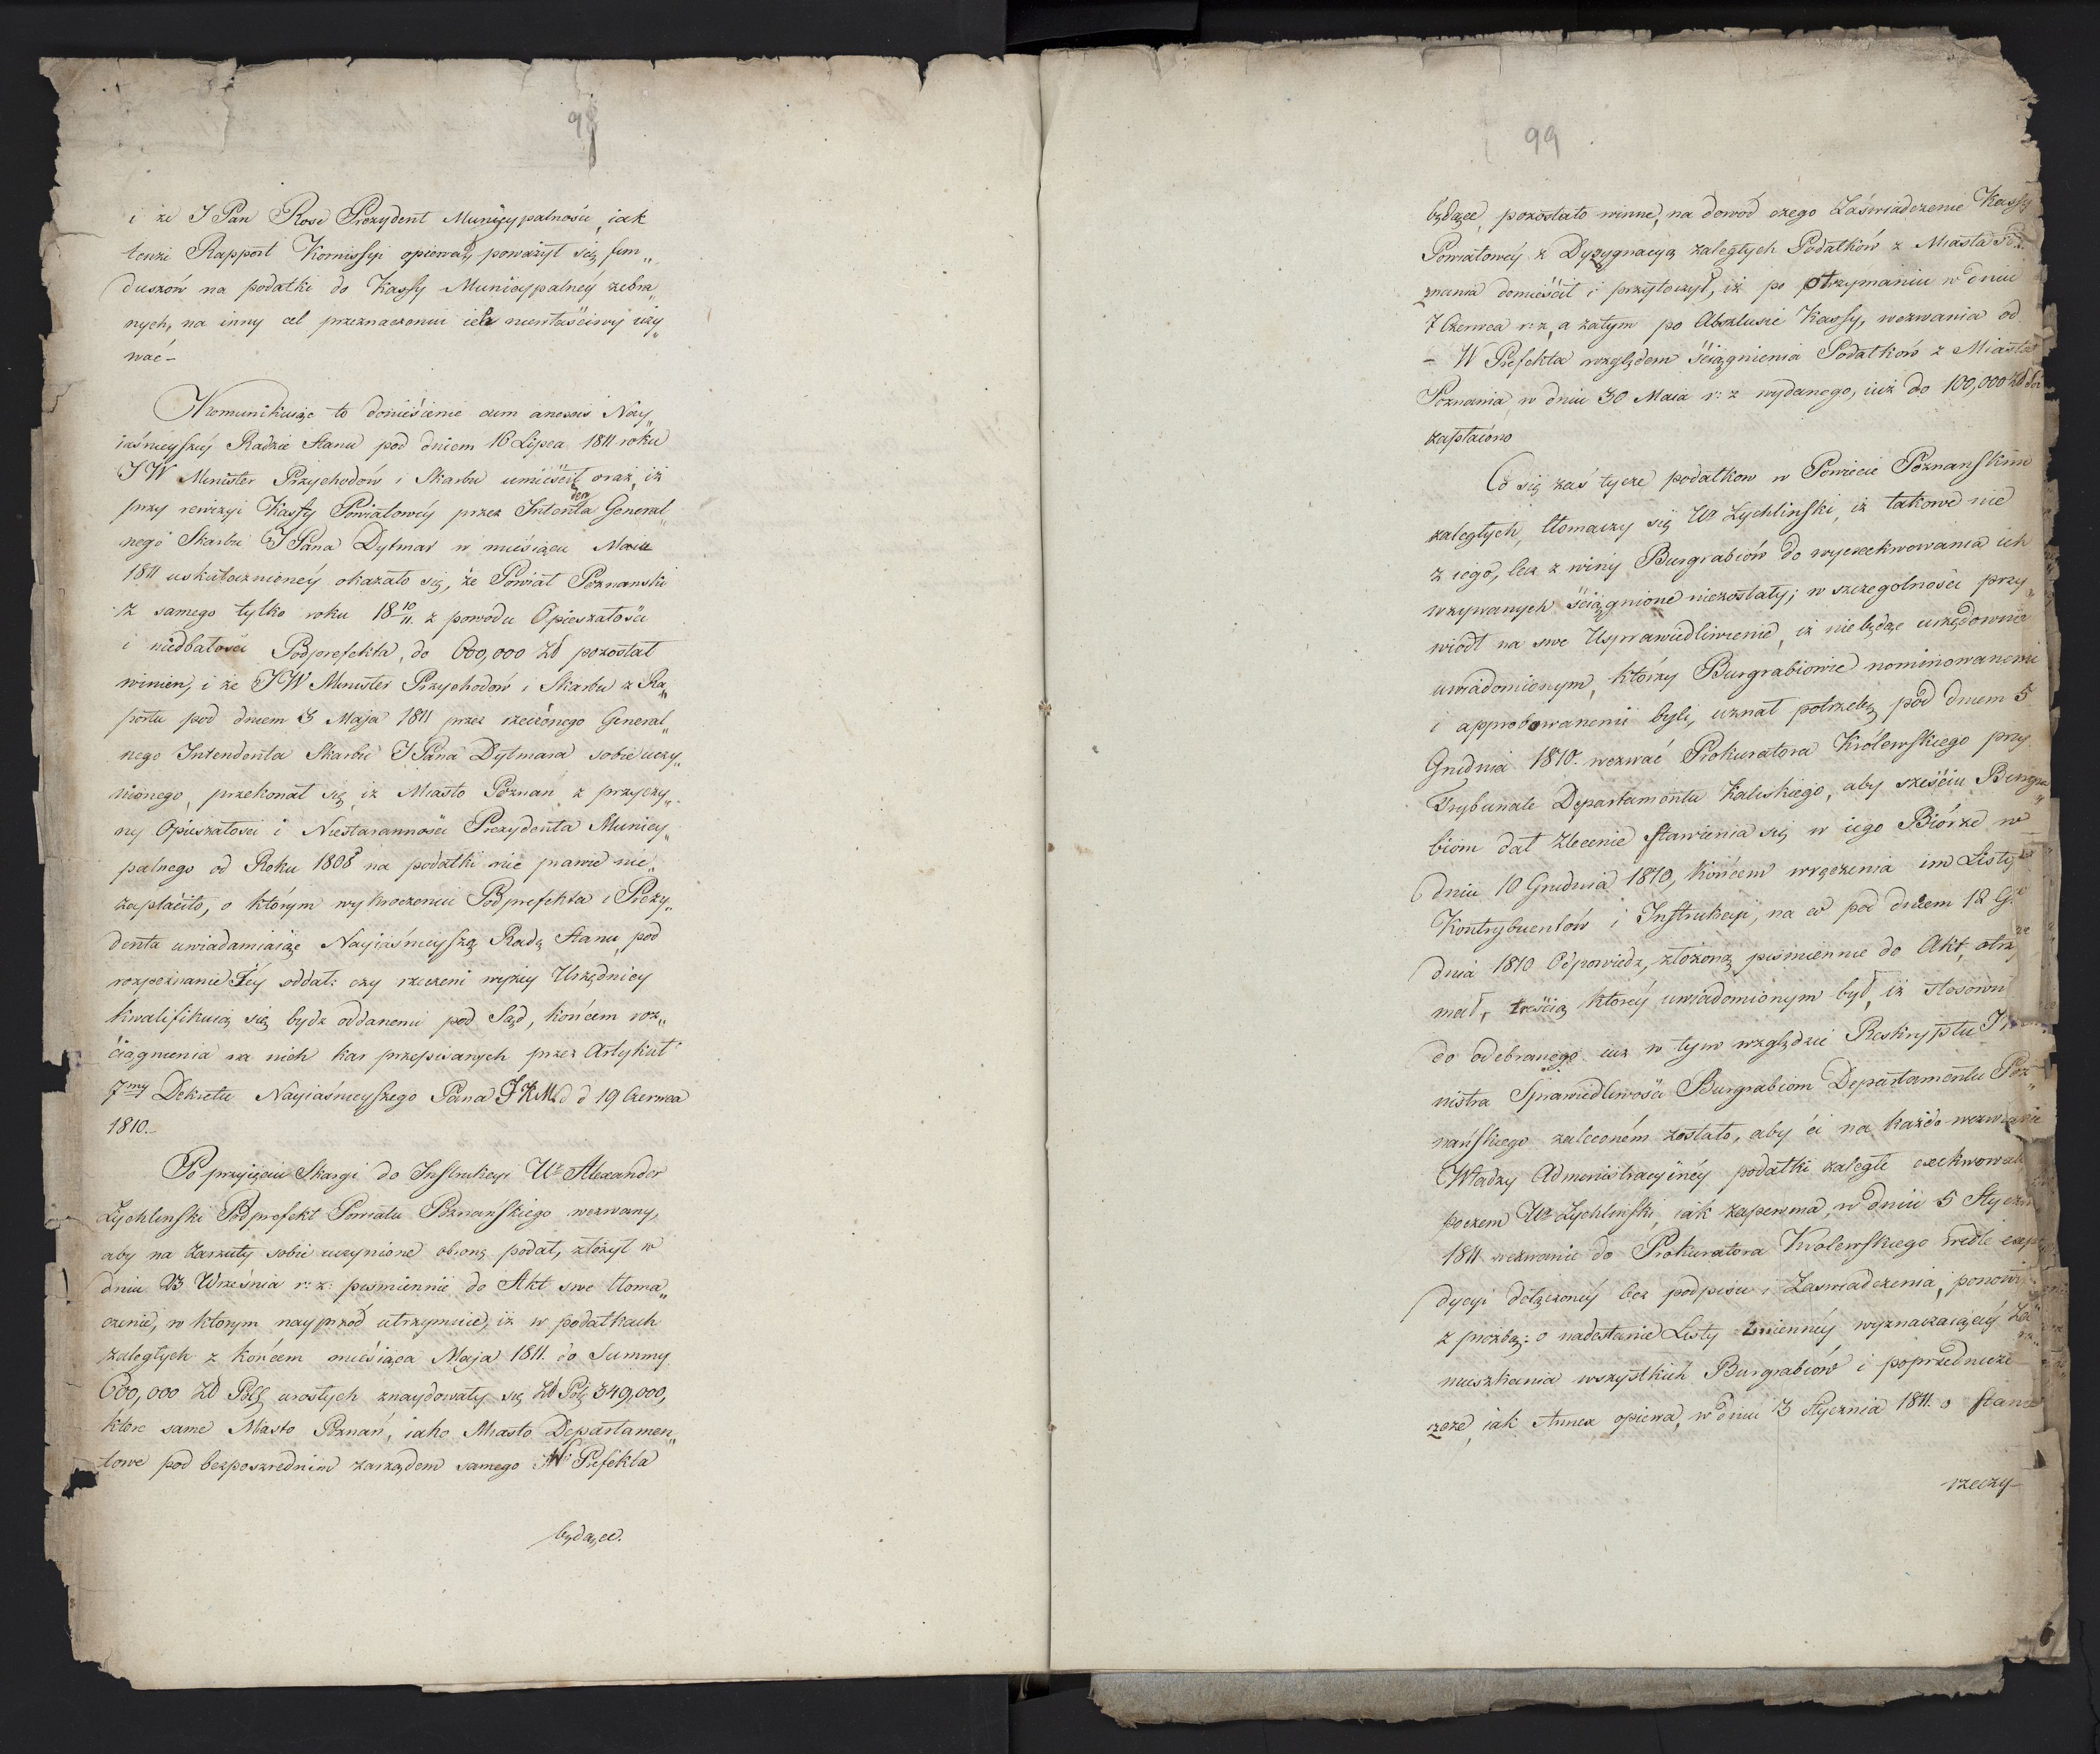 98
i że J Pan Rose Prezydent Municypalności, iak
tenże Rapport Komissyi opiewa, poważył się fun„
duszów na podatki do Kassy Municypalnéy zebra„
nych, na inny cel przeznaczeniu ich niewłaściwy uży„
wać –
Kommunikuiąc to doniesienie cum anexis Nay„
iaśnieyszéy Radzie Stanu pod dniem 16 Lipca 1811 roku
JW Minister Przychodów i Skarbu umieścił oraz, iż
przy rewizyi Kassy Powiatowéy przez Intendenta General„
nego Skarbu J Pana Dytmar w miesiącu Maiu
1811 uskutecznionéy okazało się, że Powiat Poznanski
z samego tylko roku 18 10/11. z powodu Opieszałości
i niedbałości Podprefekta, do 600,000 Zł pozostał
winien, i że JW Minister Przychodów i Skarbu z Ra„
portu pod dniem 3 Maja 1811 przez rzeczonego General„
nego Intendenta Skarbu J Pana Dytmara sobie uczy„
nionego, przekonał się, iż Miasto Poznań z przyczy„
ny Opieszałości i Niestaranności Prezydenta Municy„
palnego od Roku 1808 na podatki nic prawie nie„
zapłaciło, o którym wykroczeniu Podprefekta i Prezy„
denta uwiadamiaiąc Nayiaśnieyszą Radę Stanu, pod
rozpoznanie Jéy oddał: czy rzeczeni wyżéy Urzędnicy
kwalifikuią się bydź oddanemi pod Sąd, końcem roz„
ciągnienia na nich kar przepisanych przez Artykuł
7my Dekretu Nayiaśnieyszego Pana JKM. d d 19 Czerwca
1810.–
Po przyięciu Skargi do Instrukcyi Wz Alexander
Zychlinski Podprefekt Powiatu Poznańskiego wezwany,
aby na Zarzuty sobie uczynione obronę podał, złożył w
dniu 23 Września r: z: pismiennie do Akt swe tłoma„
czenie, w którym nayprzód utrzymuie, iż w podatkach
zaległych z końcem miesiąca Maja 1811. do Summy
600,000 Zł Pols urosłych znaydowały się Zł Pols 349,000,
które same Miasto Poznań, iako Miasto Departamen„
towe pod bezpośrednim zarządem samego W Prefekta
będące.
99
będące, pozostało winne, na dowód czego Zaświadczenie Kassy
Powiatowéy z Dyzygnacyą zaległych Podatków z Miasta Po„
znania domieścił i przytoczył, iż po otrzymaniu w dniu
7 Czerwca r: z, a zatym po Abszlusie Kassy, wezwania od
– W Prefekta względem ściągnienia Podatków z Miasta
Poznania w dniu 30 Maia r: z wydanego, iuż do 100,000 Zł
zapłacono
Co się zaś tycze podatkow w Powiecie Poznanskim
zaległych, tłomaczy się Wz Zychlinski, iż takowe nie
z iego, lecz z winy Burgrabiów do wyexekwowania ich
wzywanych ściągnione niezostały; w szczególności przy„
wiódł na swe Usprawiedliwienie, iż niebędąc urzędownie
uwiadomionym, którzy Burgrabiowie nominowanemi
i approbowanemi byli, uznał potrzebę pod dniem 5
Grudnia 1810. wezwać Prokuratora Królewskiego przy
Trybunale Departamentu Kaliskiego, aby sześciu Burgra„
biom dał Zlecenie stawienia się w iego Biórze w
dniu 10 Grudnia 1810, końcem wręczenia im Listy
Kontrybuentów i Instrukcyi, na co pod dniem 12 G
dnia 1810 Odpowiedz, złożoną pismiennie do Akt, otrzy
mał, treścią któréy uwiadomionym był, iż stosownie
do odebranego iuż w tym względzie Reskryptu
nistra Sprawiedliwości Burgrabiom Departamentu Poz„
nańskiego zaleconém zostało, aby ci na każde wezwanie
Władzy Administracyinéy podatki zaległe exekwowali
poczem Wz Zychlinski, iak zapewnia, w dniu 5 Stycznia
1811 wezwanie do Prokuratora Krolewskiego wedle expe
dycyi dołączonéy bez podpisu i Zaswiadczenia, ponowił
z prożbą: o nadesłanie Listy Imiennéy wyznaczaiącéy Za„
mieszkania wszystkich Burgrabiów i poprzednicze
zeze, iak Annex opiewa, w dniu 3 Stycznia 1811. o stanie
rzeczy